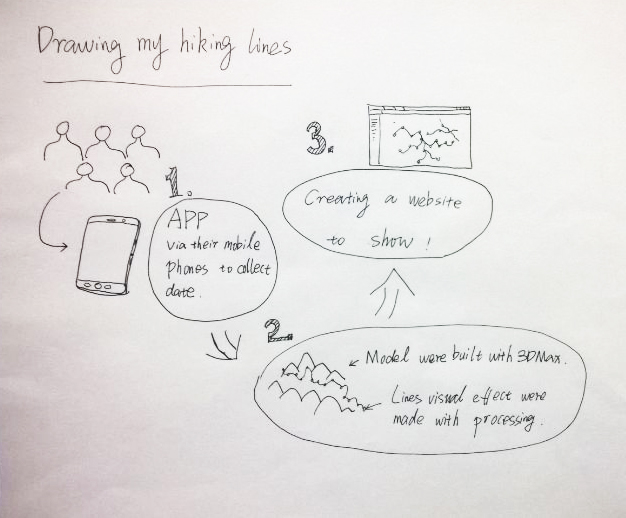 Drawing my hiking lines
1.
APP
via their mobile
phones to collect
date.
2.
Model were built with 3DMax.
Lines visual effect were
made with processing.
3.
Creating a website
to show!